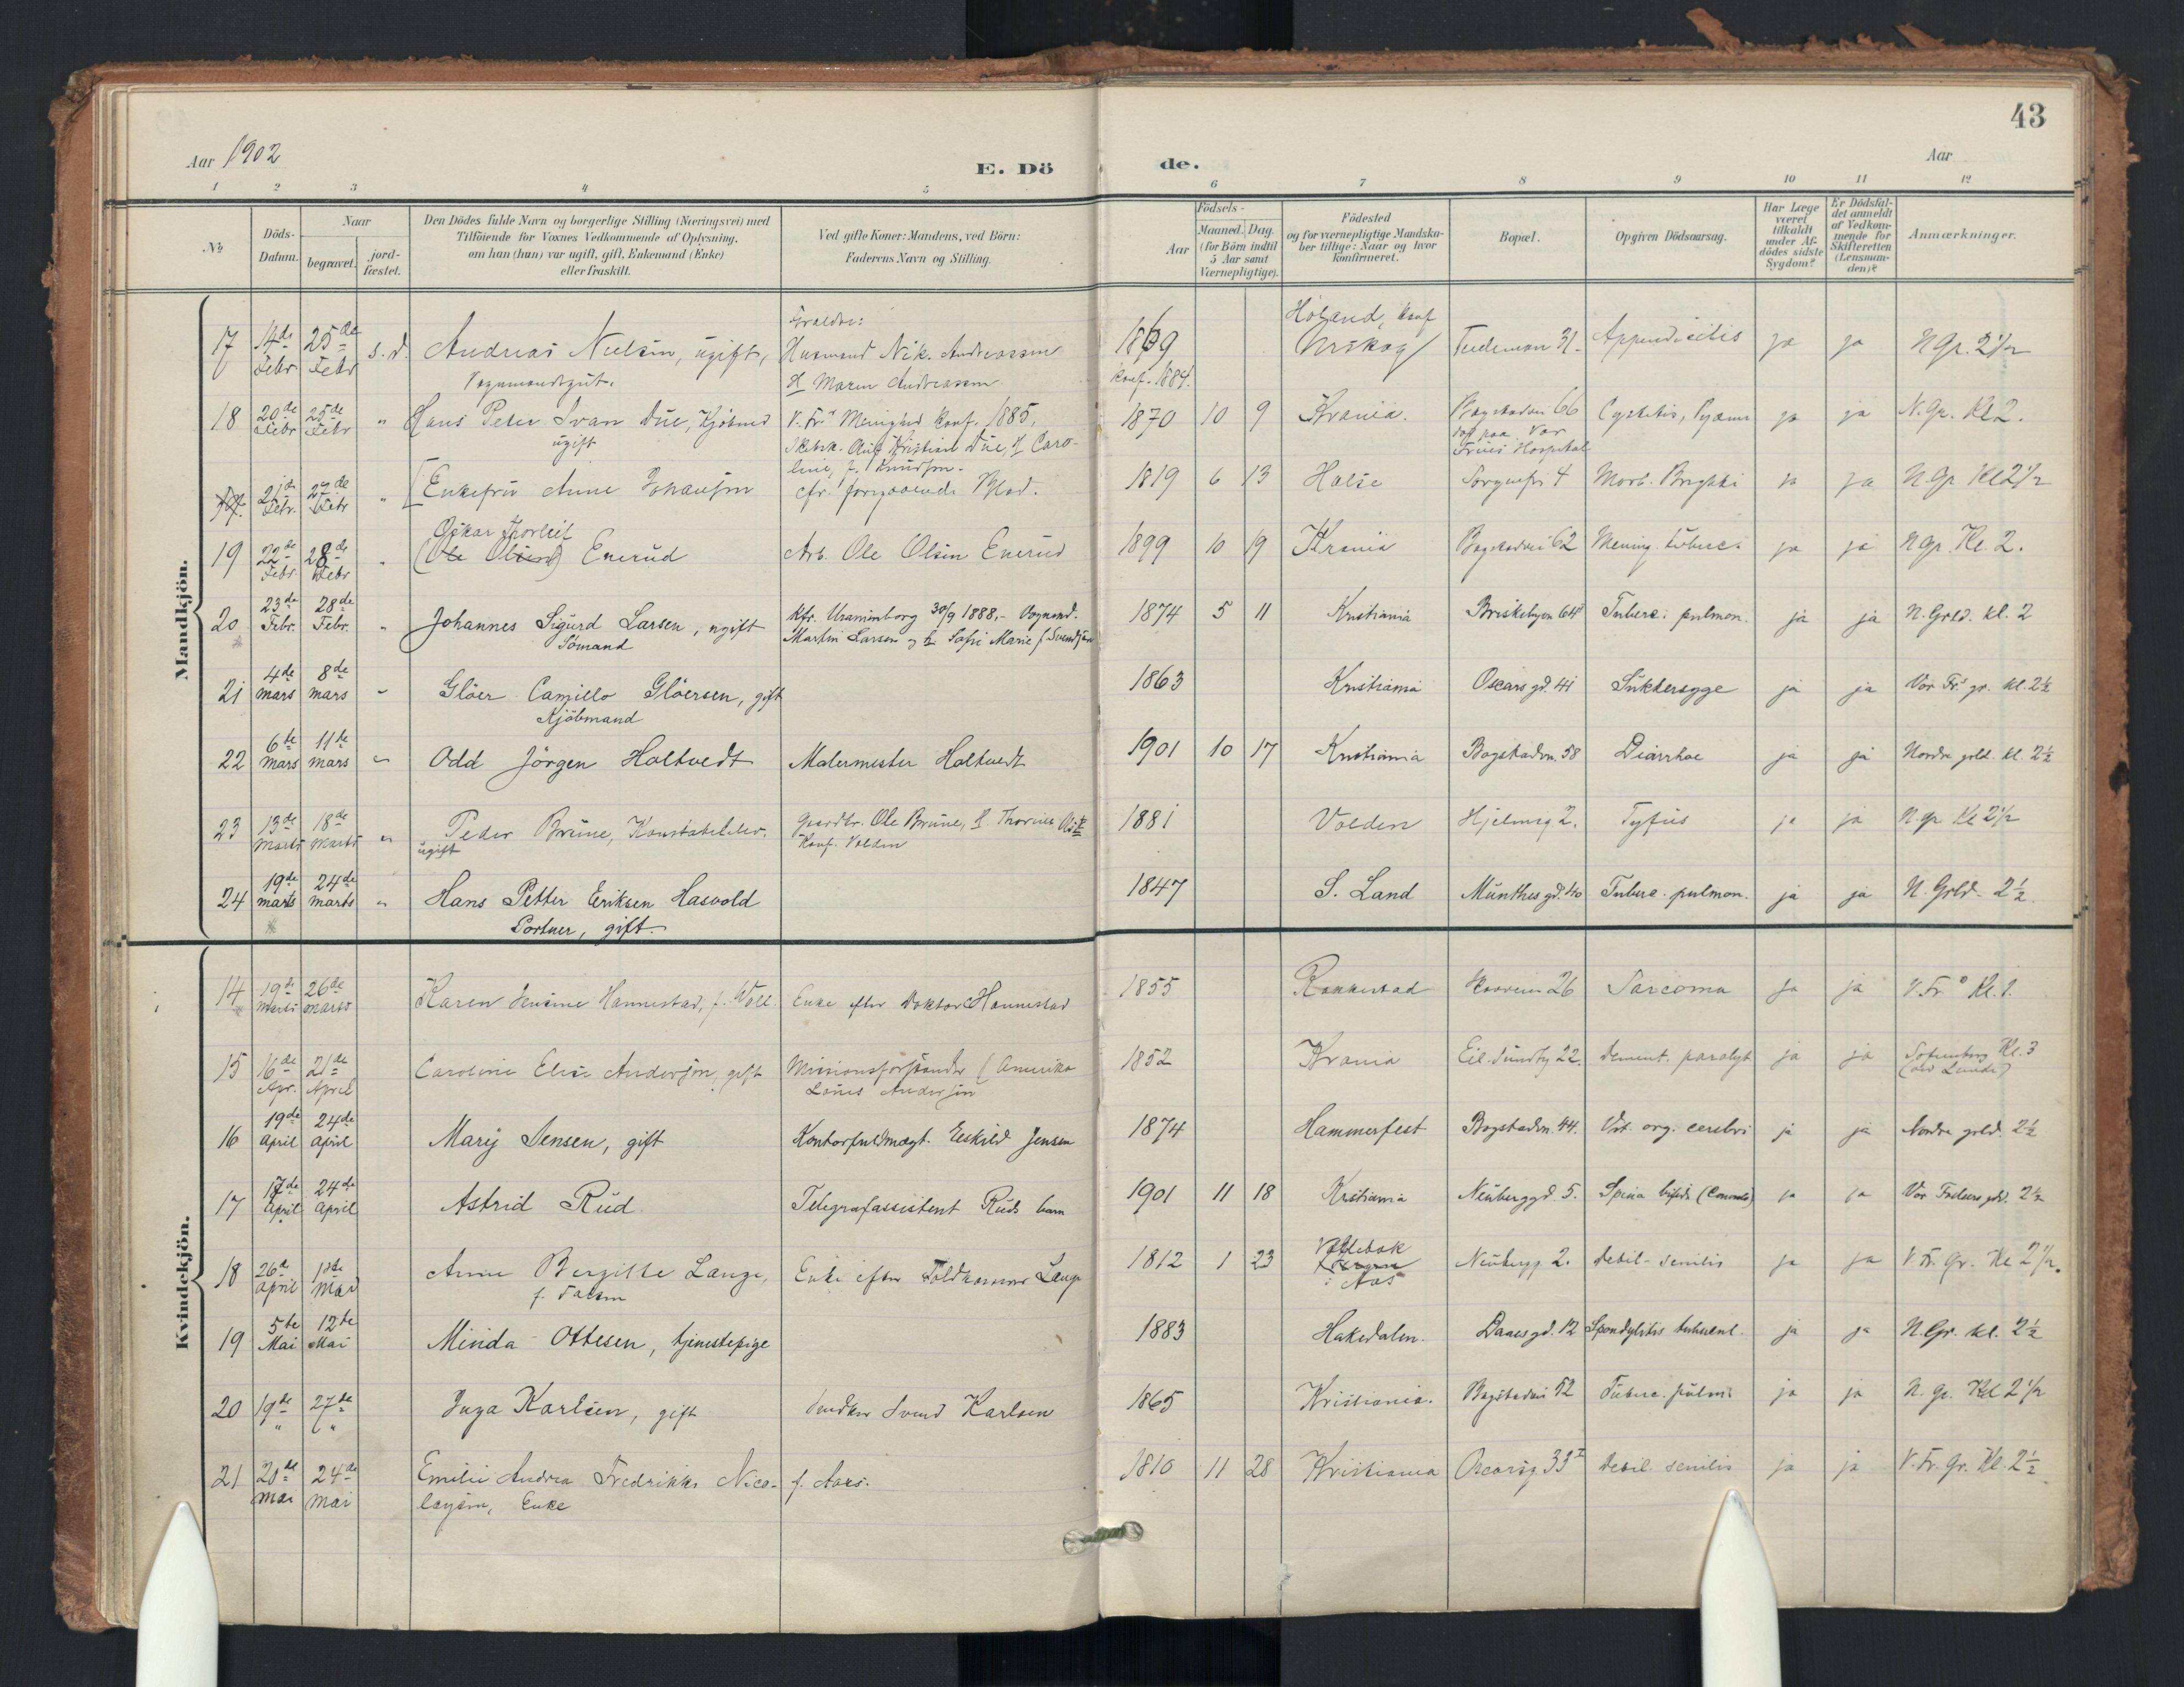 43
Aar 1902
E. Dö
de.
Aar
1 2 3 4 5 6 7 8 9 10 11 12
No
Döds-Datum.
Naar
begravet.
jord-fæstet.
Den Dödes fulde Navn og borgerlige Stilling (Næringsvei) med
Tilföiende for Voxnes Vedkommende af Oplysning,
om han (hun) var ugift, gift, Enkemand (Enke)
eller fraskilt.
Ved gifte Koner: Mandens, ved Börn:
Faderens Navn og Stilling.
Födsels-
Aar
Maaned. Dag.
(for Börn indtil
5 Aar samt
Værnepligtige).
Födested
og for værnepligtige Mandska-
ber tillige: Naar og hvor
konfirmeret.
Bopæl.
Opgiven Dödsaarsag.
Har Læge
været
tilkaldt
under Af-
dödes sidste
Sygdom?
Er Dödsfal-
det anmeldt
af Vedkom-
mende for
Skifteretten
(Lensman-
den)?
Anmærkninger.
Mandkjön.
17 14de Febr. 25de Febr s. d. Andreas Nielsen, ugift, Husmand Nik. Andreassen 1869 Höland, konf Urskog Tidemon 31 Appendicitis ja ja N Gr. 2 1/2
Vognmandsgut. H Maren Andreassen konf. 1884.
18 20de Febr 25de Febr " Hans Peter Ivan Due, Kjöbmd V. Frs Menighed konf. 1885, 1870 10 9 Krania. Bogstadvn 66 Cystitis, Pyæmi ja ja N. Gr. Kl 2.
ugift Kristian Due, H Caro-
line, f. Knudsen. Vor Frues Hospital
21de Febr. 27de Febr " Enkefru Anne Johansen cfr. foregaaende Blad. 1819 6 13 Halse Sorgenfri 4 Morb. Brightii ja ja N. Gr Kl 2 1/2
Oskar Thorleif
19 22de Febr. 28de Febr " (Ole Olsens) Enerud Arb. Ole Olsen Enerud 1899 10 19 Krania Bogstadvei 62 Mening. tuberc. ja ja N Gr. Kl. 2.
20 23de Febr. 28de Febr. " Johannes Sigurd Larsen, ugift Kfr. Uranienborg 30/9 1888,- Vognmd. 1874 5 11 Kristiania Briskebyvn 64 Tuberc. pulmon. ja ja N. Grld. kl. 2
Sömand Martin Larsen og H Sofie Marie f Svendsen
21 4de mars 8de mars " Glöer Camillo Glöersen, gift 1863 Kristiania Oscars gd. 41 Sukkersyge ja ja Vor Frs gr. kl. 2 1/2
Kjöbmand
22 6te mars 11te mars " Odd Jörgen Holtvedt Malermester Holtvedt 1901 10 17 Kristiania Bogstadvn. 58 Diarrhoe ja ja Nordre grld. kl. 2 1/2
23 13de Marts 18de Marts " Peder Brune, Konstabelelev. Gaardbr. Ole Brune, H. 1881 Volden Hjelmsg 2. Tyfus ja ja N. gr Kl 2 1/2
ugift Konf. Volden
24 19de marts 24de marts " Hans Petter Eriksen Hasvold 1847 S. Land Munthes gd. 40 Tuberc. pulmon. ja ja N. Grld. 2 1/2
Portner, gift.
Kvindekjön.
14 19de Marts 26de Marts Karen Jensine Hannestad, f. Woll Enke efter Doktor Hannestad 1855 Rakkestad 26 Sarcoma ja ja V. Fr. Kl. 1.
15 16de Apr. 21de April Caroline Elise Andersen, gift Missionsforstander (Amerika 1852 Krania Eil. Sundtg 22. Dement. paralyt ja ja Kl. 3
Louis Andersen
16 19de April 24de April Mary Jensen, gift Kontorfuldmægt. Eskild Jensen 1874 Hammerfest Bogstadvn. 44. Vit. org. cerebri ja ja Nordre grld. 2 1/2
17 17de April 24de April Astrid Rud Telegrafassistent Ruds barn 1901 11 18 Kristiania Neuberggd. 5. Spina bifida ja ja Vor Frelsers grd. 2 1/2
18 26de April 1ste Mai Anne Bergitte Lange, Enke efter Toldkasserer Lange 1812 1 23 Neubergg 2. Debil. senilis ja ja V. Fr. Gr. Kl 2 1/2.
f. i Aas
19 5te Mai 12te Mai Minda Ottesen, tjenestepige 1883 Hakedalen. Daasgd. 12 Spondylitis tubercul. ja ja N. Gr. kl. 2 1/2
20 19de " 27de " Inga Karlsen, gift Svend Karlsen 1865 Kristiania. Bogstadvei 52 Tuberc. pulm. ja ja N. Gr. Kl 2 1/2
21 20de Mai 24de Mai Emilie Andrea Fredrikke Nico- f. Aars. 1810 11 28 Kristiania Oscarsg 33 Debil. senilis ja ja V. Fr. Gr. Kl. 2 1/2
laysen, Enke